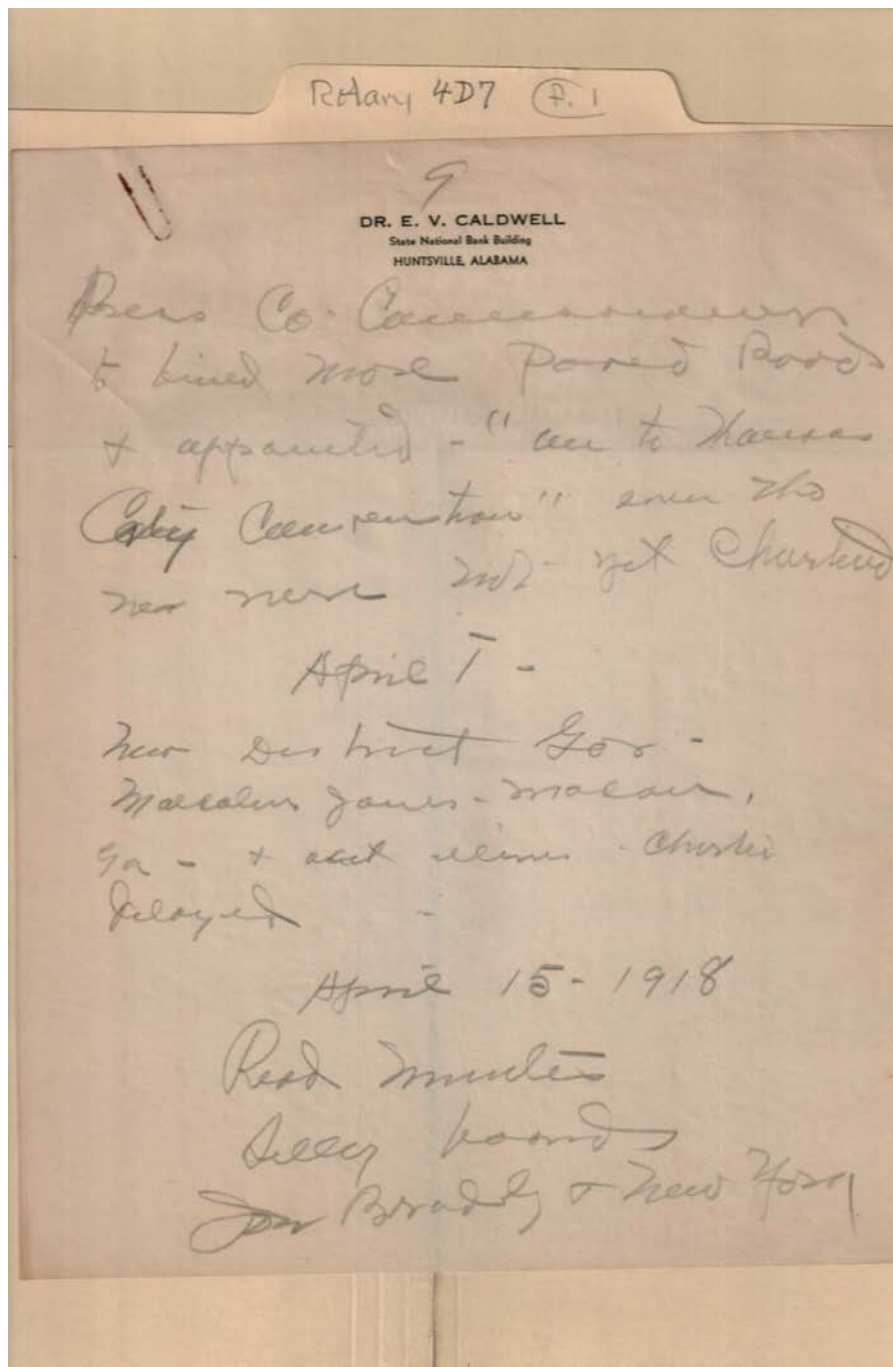 Rotary 4D7 P. 1
9
DR. E. V. CALDWELL
State National Bank Building
HUNTSVILLE, ALABAMA
Press Co. Commissioners
to build more Paved Roads
& appointed - "on to Kansas
City Convention" even tho
we were not yet Charterd
April 1 -
New District Gov -
Malcolm Jones - Macon,
Ga - & Charter
Delayed -
April 15 - 1918
Read Minutes
Sell bonds
Joe Bradley & New York